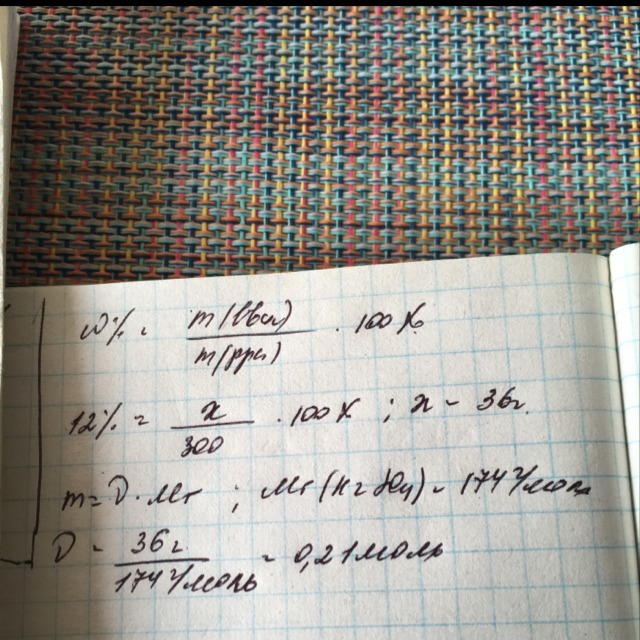 ω% = m(вва) / m(рра) · 100%
12% = x / 300 · 100% ; x = 36г.
m = ν · Mr ; Mr(K2SO4) = 174 г/моль
ν = 36г / 174 г/моль = 0,21 моль